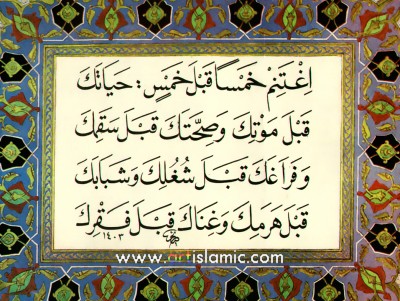 اِغْتَنِمْ خَمْسًا قَبْلَ خَمْسٍ : حَيَاتَكَ
قَبْلَ مَوْتِكَ وَصِحَّتَكَ قَبْلَ سَقَمِكَ
وَفَرَاغَكَ قَبْلَ شُغُلِكَ وَشَبَابَكَ
قَبْلَ هَرَمِكَ وَغِنَاكَ قَبْلَ فَقْرِكَ
١٤٠٣
www.artislamic.com